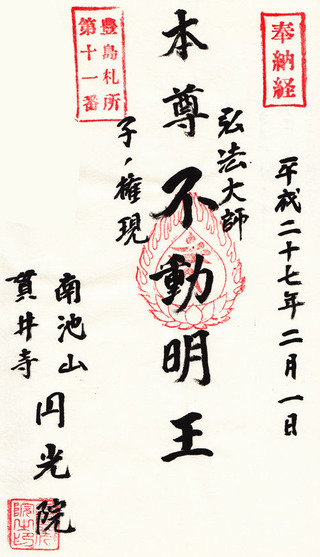 奉納経
平成二十七年二月一日
弘法大師
本尊不動明王
子ノ権現
豊島札所
第十一番
南池山
貫井寺
円光院